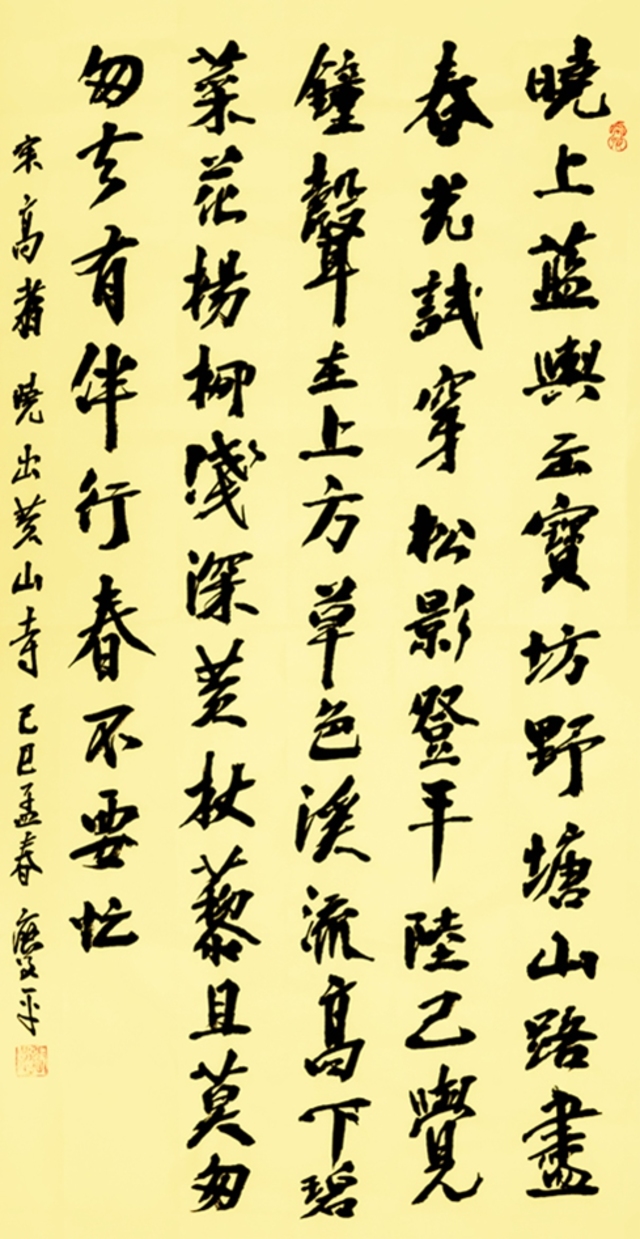 曉上藍輿出寶坊野塘山路盡
春光試穿松影登平陸已覺
鐘聲在上方草色溪流高下碧
菜花楊柳淺深黃杖藜且莫匆
匆去有伴行春不要忙
宋高翥曉出黃山寺己巳孟春平